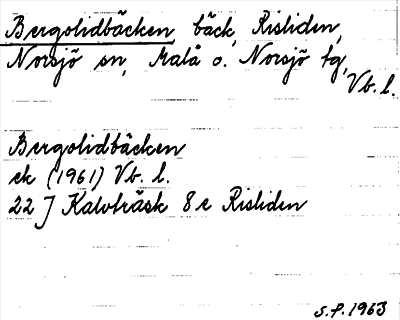 Bergolidbäcken, bäck, Risliden,
Norsjö sn, Malå o. Norsjö tg,
Vb. l.
Bergolidbäcken
ek (1961) Vb. l.
22 J Kalvträsk 8 c Risliden
S.P. 1963